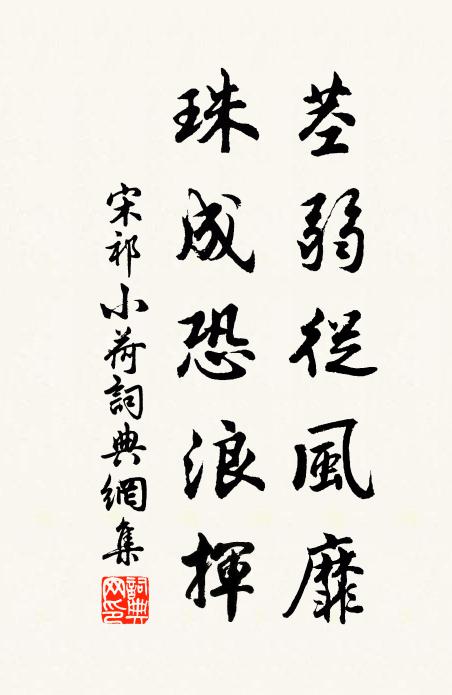 茎弱從風靡
珠成恐浪揮
宋祁小荷詞典網集
詞典網印